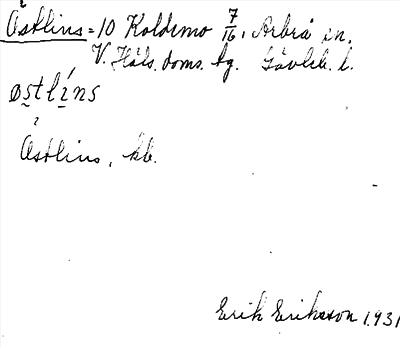 Östlins = 10 Koldemo 7/16, Arbrå sn,
V. Häls. doms. hg. Gävleb. l.
østlíns
Östlins, kb.
Erik Eriksson 1931